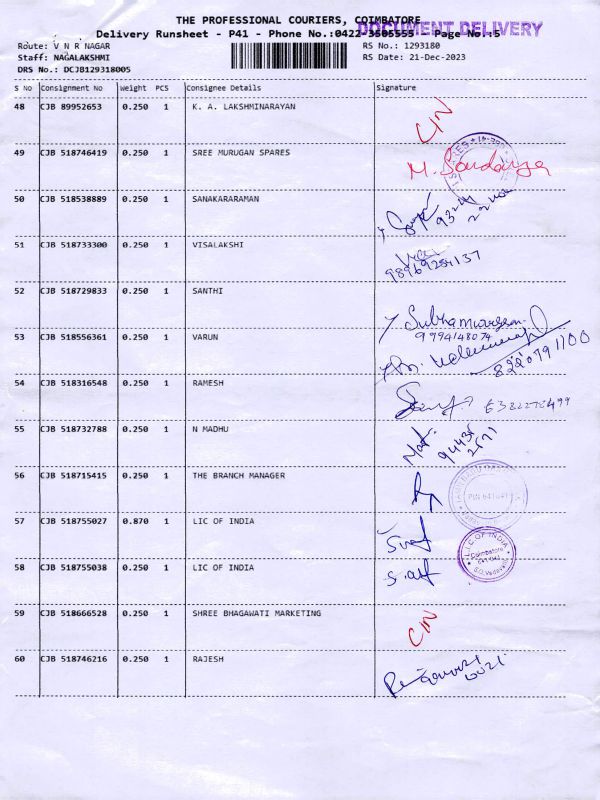 THE PROFESSIONAL COURIERS, COIMBATORE
DOCUMENT DELIVERY
Delivery Runsheet - P41 - Phone No.:0422-3505555 - Page No.:5
Route: V N R NAGAR
RS No.: 1293180
Staff: NAGALAKSHMI
RS Date: 21-Dec-2023
DRS No.: DCJB129318005
S No Consignment No Weight PCS Consignee Details Signature
48 CJB 89952653 0.250 1 K. A. LAKSHMINARAYAN CIN
49 CJB 518746419 0.250 1 SREE MURUGAN SPARES M. Soundarya
50 CJB 518538889 0.250 1 SANAKARARAMAN
51 CJB 518733300 0.250 1 VISALAKSHI
52 CJB 518729833 0.250 1 SANTHI
9994148074
53 CJB 518556361 0.250 1 VARUN 8220791100
54 CJB 518316548 0.250 1 RAMESH
55 CJB 518732788 0.250 1 N MADHU
56 CJB 518715415 0.250 1 THE BRANCH MANAGER
57 CJB 518755027 0.870 1 LIC OF INDIA
LIC OF INDIA
Coimbatore
58 CJB 518755038 0.250 1 LIC OF INDIA
59 CJB 518666528 0.250 1 SHREE BHAGAWATI MARKETING CIN
60 CJB 518746216 0.250 1 RAJESH